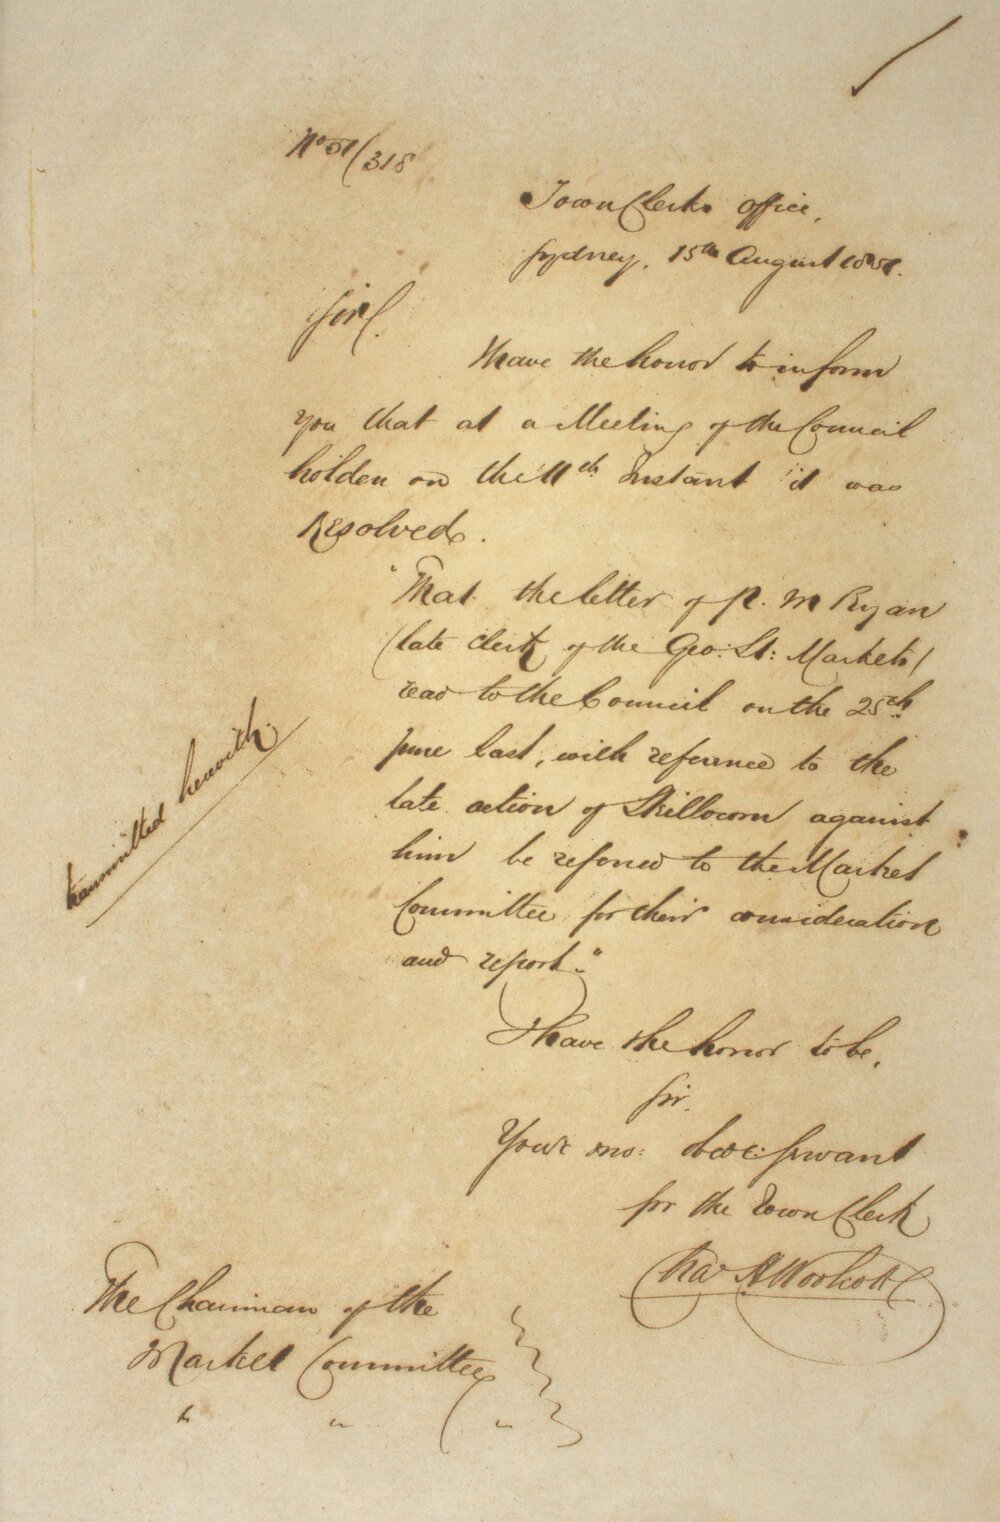 No 51/318
Town Clerks Office,
Sydney, 15th August 1851.
Sir,
I have the honor to inform
you that at a Meeting of the Council
holden on the 11th Instant it was
Resolved.
"That the letter of P. M Ryan
(late clerk of the Geo: St: Markets)
read to the Council on the 25th
June last, with reference to the
late action of Skillocorn against
him be referred to the Market
Committee for their consideration
and report."
I have the honor to be,
Sir.
Your mo: obdt: Servant
for the Town Clerk
Chas H Woolcott
transmitted herewith
The Chairman of the
Market Committee
" " "